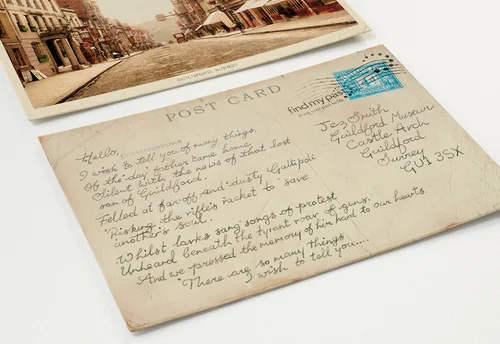 GUILDFORD, SURREY
POST CARD
Correspondence
find my pas
Hello,
I wish to tell you of many things,
Of the day father came home
Silent with the news of that lost
son of Guildford.
Felled at far-off and dusty Gallipoli
Risking the rifle's racket to save
another's soul.
Whilst larks sang songs of protest
Unheard beneath the tyrant roar of guns.
And we pressed the memory of him hard to our hearts.
"There are so many things
I wish to tell you....
Jez Smith
Guildford Museum
Castle Arch
Guildford
Surrey
GU1 3SX